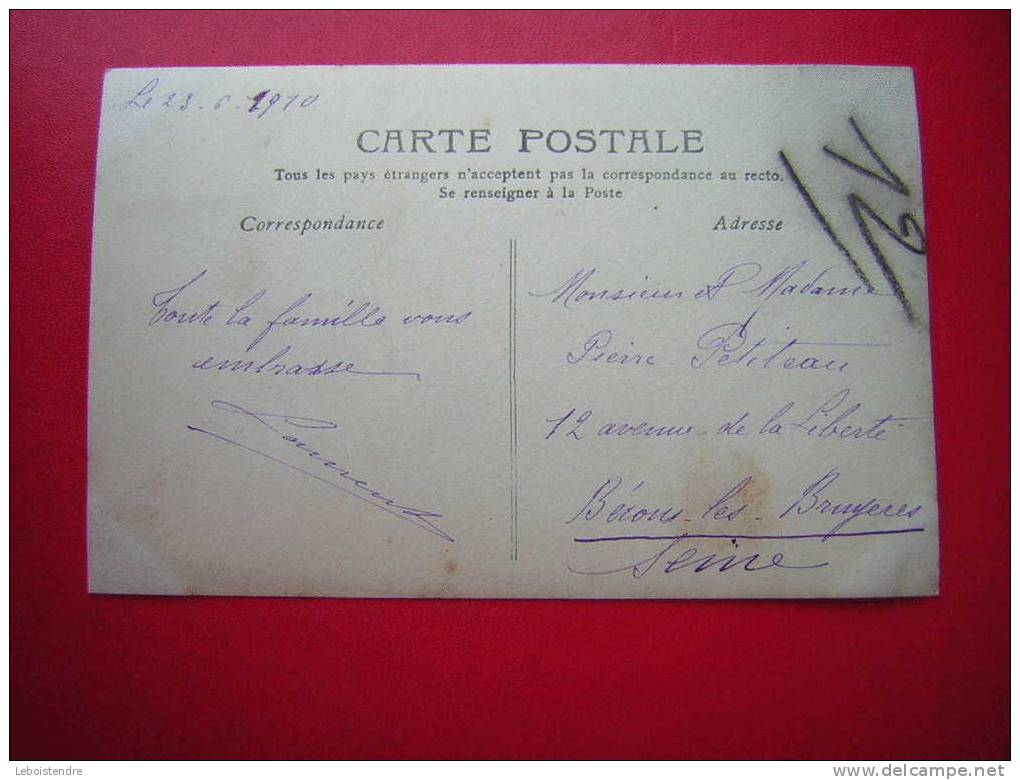 Le 23-6-1910
CARTE POSTALE
Tous les pays étrangers n'acceptent pas la correspondance au recto.
Se renseigner à la Poste
Correspondance
Adresse
Toute la famille vous
embrasse
Monsieur et Madame
Pierre Petiteau
12 avenue de la Liberté
Bécons-les-Bruyeres
Seine
Leboistendre
www.delcampe.net